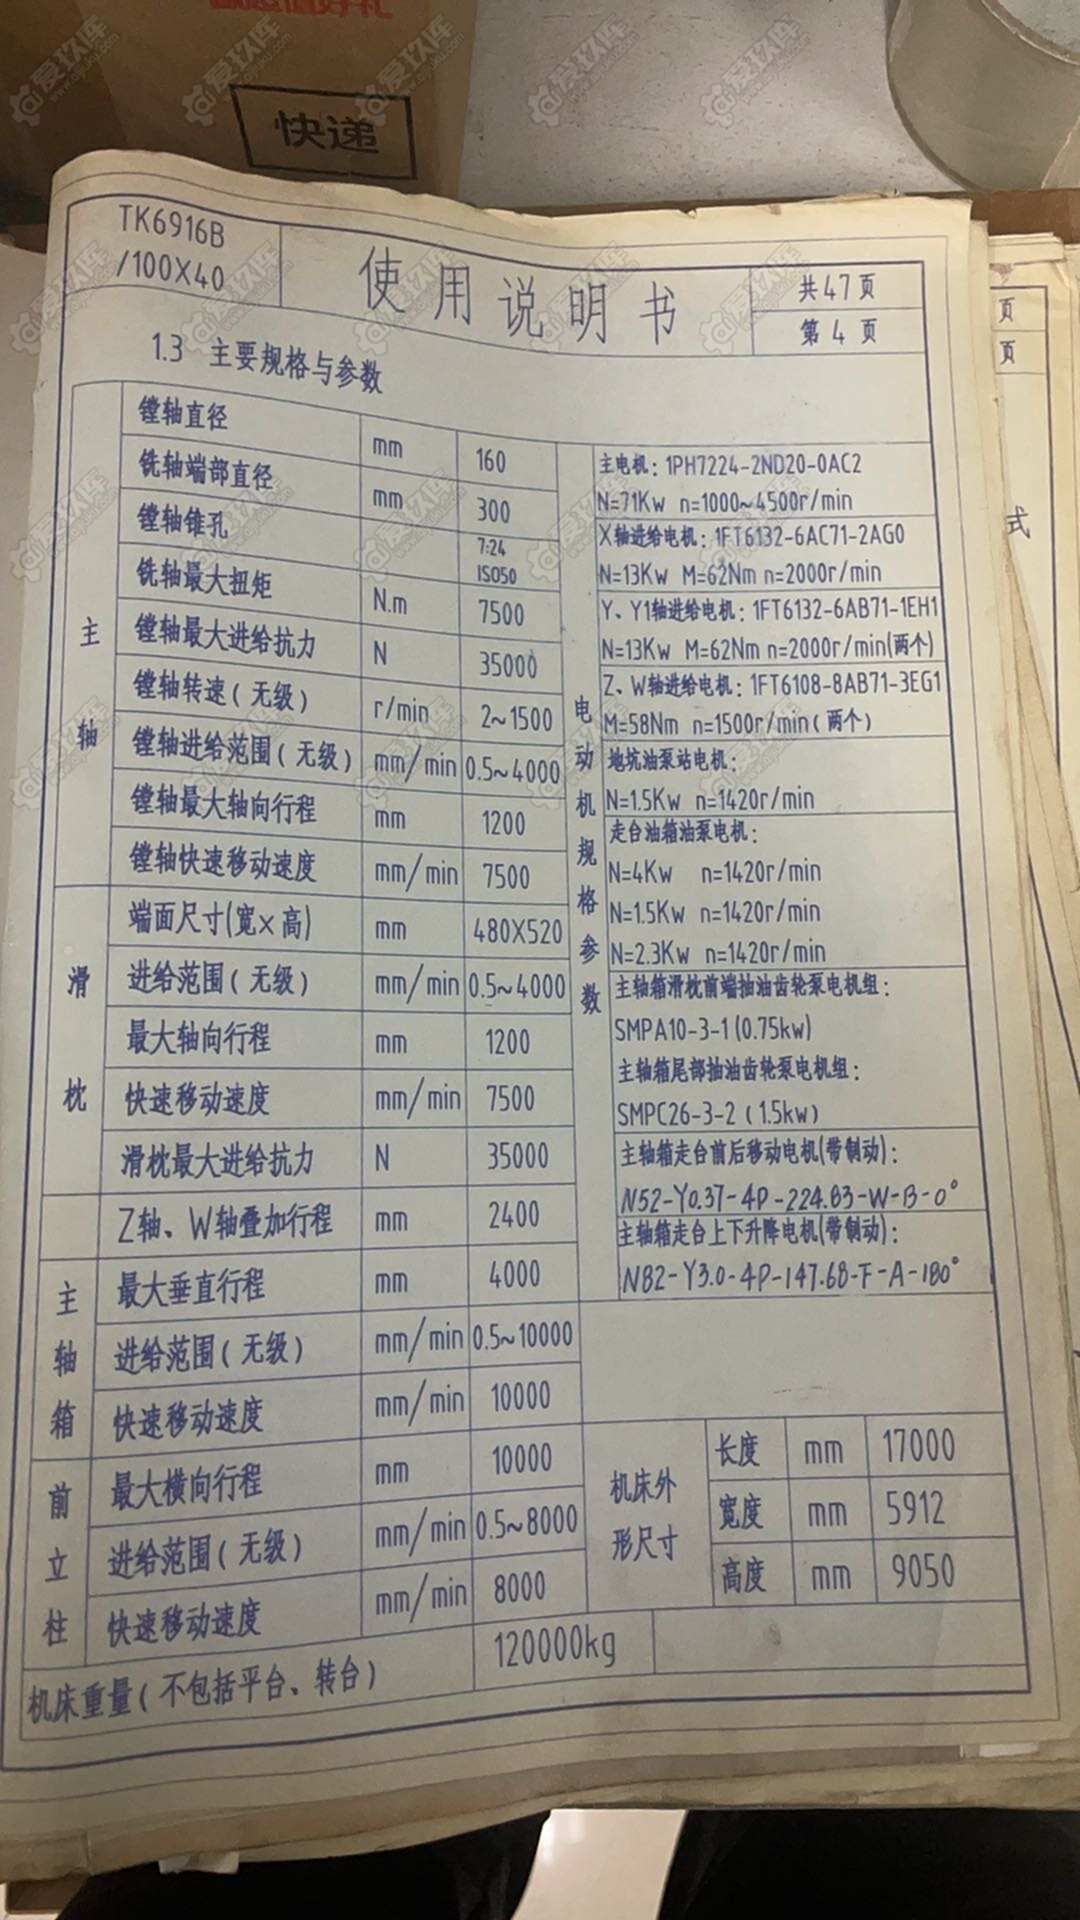 快递
TK6916B
/100X40
使用说明书
共47页
第4页
页
页
式
1.3 主要规格与参数
主轴
镗轴直径 mm 160
铣轴端部直径 mm 300
镗轴锥孔 7:24 ISO50
铣轴最大扭矩 N.m 7500
镗轴最大进给抗力 N 35000
镗轴转速(无级) r/min 2~1500
镗轴进给范围(无级) mm/min 0.5~4000
镗轴最大轴向行程 mm 1200
镗轴快速移动速度 mm/min 7500
滑枕
端面尺寸(宽×高) mm 480X520
进给范围(无级) mm/min 0.5~4000
最大轴向行程 mm 1200
快速移动速度 mm/min 7500
滑枕最大进给抗力 N 35000
Z轴、W轴叠加行程 mm 2400
主轴箱
最大垂直行程 mm 4000
进给范围(无级) mm/min 0.5~10000
快速移动速度 mm/min 10000
前立柱
最大横向行程 mm 10000
进给范围(无级) mm/min 0.5~8000
快速移动速度 mm/min 8000
机床重量(不包括平台、转台) 120000kg
电动机规格参数
主电机:1PH7224-2ND20-0AC2
N=71Kw n=1000~4500r/min
X轴进给电机:1FT6132-6AC71-2AG0
N=13Kw M=62Nm n=2000r/min
Y、Y1轴进给电机:1FT6132-6AB71-1EH1
N=13Kw M=62Nm n=2000r/min(两个)
Z、W轴进给电机:1FT6108-8AB71-3EG1
M=58Nm n=1500r/min(两个)
地坑油泵站电机:
N=1.5Kw n=1420r/min
走台油箱油泵电机:
N=4Kw n=1420r/min
N=1.5Kw n=1420r/min
N=2.3Kw n=1420r/min
主轴箱滑枕前端抽油齿轮泵电机组:
SMPA10-3-1(0.75kw)
主轴箱尾部抽油齿轮泵电机组:
SMPC26-3-2(1.5kw)
主轴箱走台前后移动电机(带制动):
N52-Y0.37-4P-224.83-W-B-0°
主轴箱走台上下升降电机(带制动):
N82-Y3.0-4P-147.68-F-A-180°
机床外形尺寸
长度 mm 17000
宽度 mm 5912
高度 mm 9050